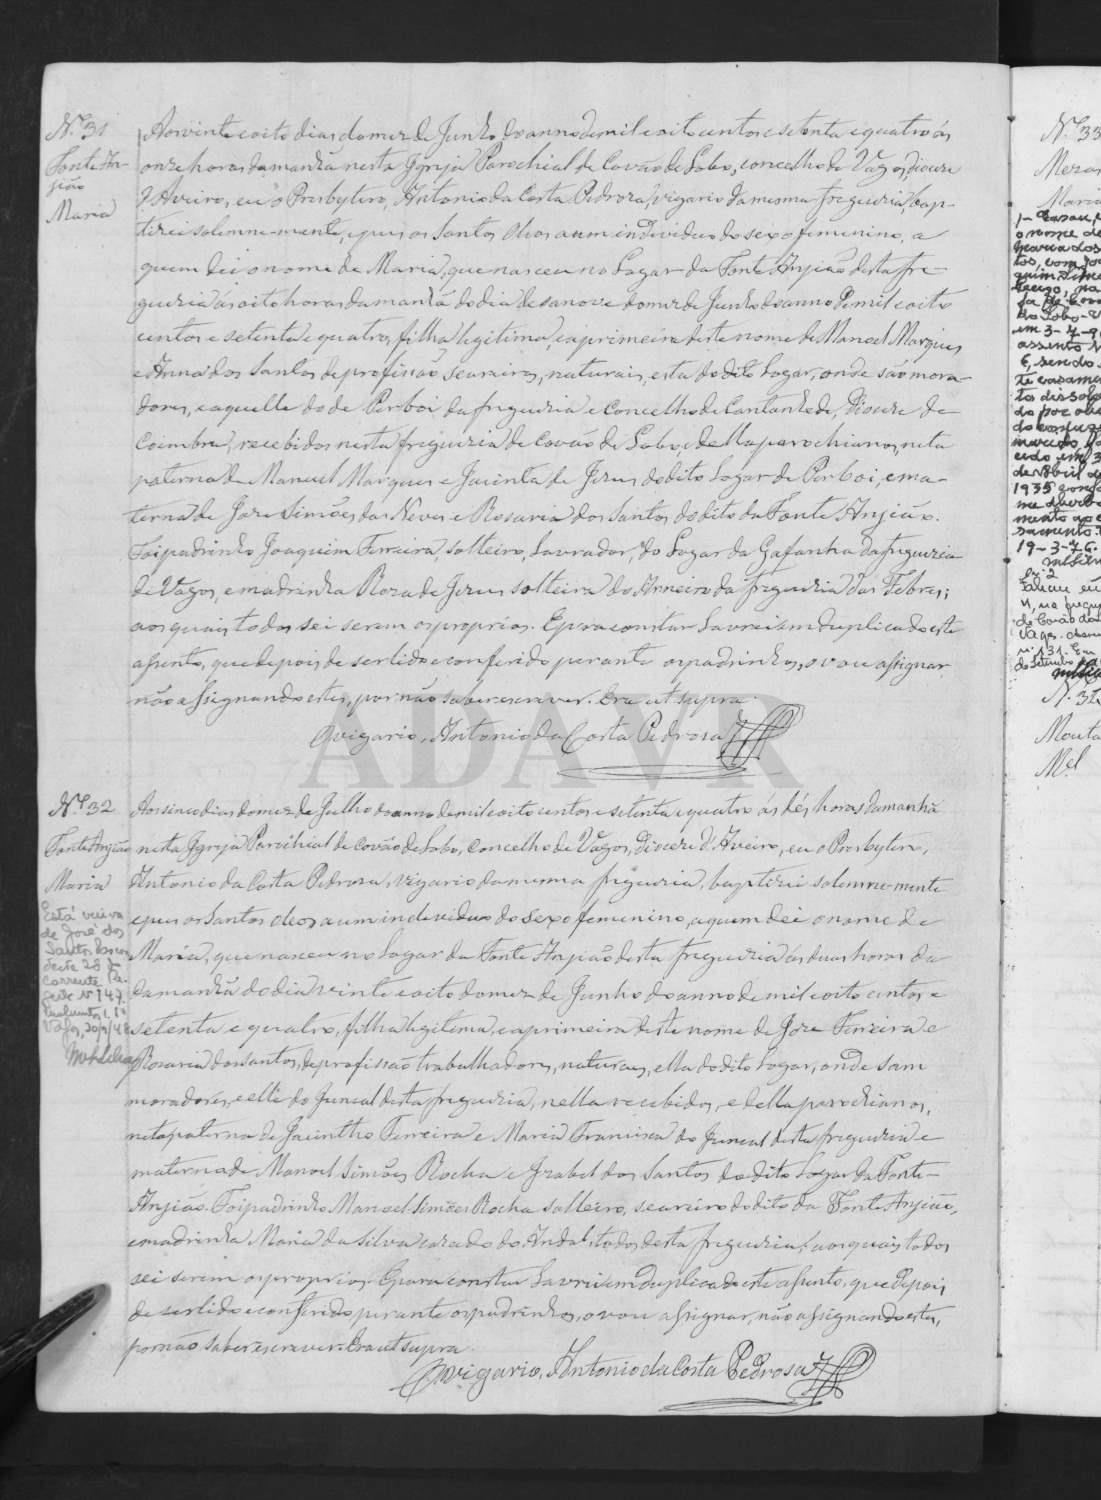 N.º 31
Fonte An-
gião
Maria
Aos vinte e oito dias do mez de Junho do anno de mil e oito centos e setenta e quatro ás
onze horas da manhã nesta Igreja Parochial de Covão de Lobo, concelho de Vagos, diocese
d'Aveiro, eu o Presbytero, Antonio da Costa Pedrosa, vigario da mesma freguezia, bap-
tizei solemne-mente, e puz os Santos Oleos a um individuo do sexo femenino, a
quem dei o nome de Maria, que nasceu no Lugar da Fonte Anjião desta fre-
guezia ás oito horas da manhã do dia desanove do mez de Junho do anno de mil e oito
centos e setenta e quatro, filha legitima, e a primeira deste nome de Manoel Marques
e Anna dos Santos de profissão seareiros, naturais, esta do dito Lugar, onde são mora-
dores, e aquelle do de Perboi da freguezia e Concelho de Cantanhede, Diocese de
Coimbra, recebidos nesta freguezia de Covão de Lobo, e della parochianos, neta
paterna de Manuel Marques e Jacinta de Jezus do dito Lugar de Perboi, e ma-
terna de Joze Simões das Neves e Rosaria dos Santos do dito da Fonte Anjião.
Foi padrinho Joaquim Ferreira, solteiro, Lavrador, do Lugar da Gafanha da freguezia
de Vagos, e madrinha Roza de Jezus solteira do Arneiro da freguezia das Febres;
aos quais todos sei serem os proprios. E para constar Lavrei em duplicado este
assento, que depois de ser lido e conferido perante os padrinhos, o vou assignar
não assignando estes, por não saber escrever. Era ut supra.
O vigario, Antonio da Costa Pedrosa
N.º 32
Fonte Anjião
Maria
Está viuva
de José dos
Santos
deste 28 de
corrente
N.º 147
Vagos, 30/
Aos sinco dias do mez de Julho do anno de mil e oito centos e setenta e quatro ás dés horas da manhã
nesta Igreja Parochial de Covão de Lobo, Concelho de Vagos, Diocese d'Aveiro, eu o Presbytero,
Antonio da Costa Pedrosa, vigario da mesma freguezia, baptizei solemne-mente
e puz os Santos oleos a um individuo do sexo femenino, a quem dei o nome de
Maria, que nasceu no Lugar da Fonte Anjião desta freguezia ás duas horas da
da manhã do dia vinte e oito do mez de Junho do anno de mil e oito centos e
setenta e quatro, filha legitima, e a primeira deste nome de Joze Ferreira e
Rosaria dos santos, de profissão trabalhadores, naturaes, ella do dito Lugar, onde sam
moradores, e elle do Juncal desta freguezia, nella recebidos, e della parochianos,
neta paterna de Jacintho Ferreira e Maria Francisca do Juncal desta freguezia e
materna de Manoel Simões Rocha e Izabel dos Santos do dito Lugar da Fonte-
Anjião. Foi padrinho Manoel Simões Rocha solteiro, seareiro do dito da Fonte Anjião,
e madrinha Maria da Silva cazada do Andal, todos desta freguezia, aos quais todos
sei serem os proprios. E para constar Lavrei em duplicado este assento, que depois
de ser lido e conferido perante os padrinhos, o vou assignar, não assignando estes,
por não saber escrever. Era ut supra.
O vigario, Antonio da Costa Pedrosa
ADAVR
N.º 33
Maria
o nome de
tos, com
do Lobo
em 3-7-
assento
6, sendo
te casame
to dissol
do por
do conjuge
marido,
de Abril
1935
mento
19-3-76.
N.º 2
na fregue
de Covão do
Vagos.
n.º 131. Em
de Setembro
N. 34
Mel